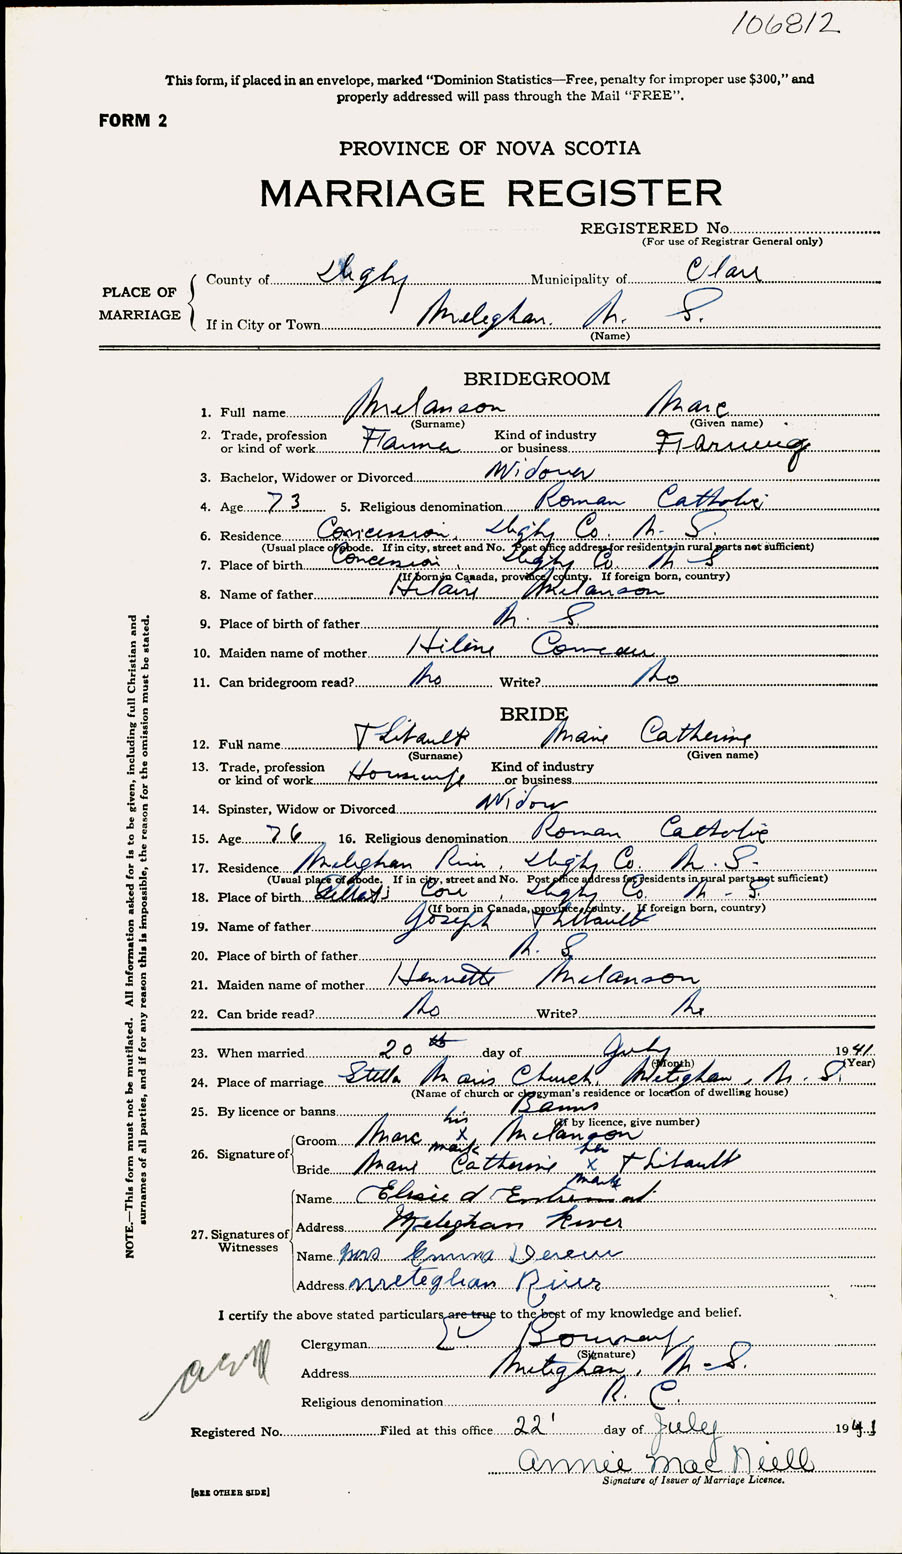 106812
This form, if placed in an envelope, marked "Dominion Statistics—Free, penalty for improper use $300," and
properly addressed will pass through the Mail "FREE".
FORM 2
PROVINCE OF NOVA SCOTIA
MARRIAGE REGISTER
REGISTERED No.
(For use of Registrar General only)
PLACE OF MARRIAGE
County of Digby Municipality of Clare
If in City or Town Meteghan. N. S.
(Name)
BRIDEGROOM
1. Full name Melanson Marc
(Surname) (Given name)
2. Trade, profession or kind of work Farmer Kind of industry or business Farming
3. Bachelor, Widower or Divorced Widower
4. Age 73 5. Religious denomination Roman Catholic
6. Residence Concession, Digby Co. N. S.
(Usual place of abode. If in city, street and No. Post office address for residents in rural parts not sufficient)
7. Place of birth Concession, Digby Co. N S
(If born in Canada, province, county. If foreign born, country)
8. Name of father Hilaire Melanson
9. Place of birth of father N. S.
10. Maiden name of mother Hilène Comeau
11. Can bridegroom read? No Write? No
BRIDE
12. Full name Thibault Marie Catherine
(Surname) (Given name)
13. Trade, profession or kind of work Housewife Kind of industry or business
14. Spinster, Widow or Divorced Widow
15. Age 76 16. Religious denomination Roman Catholic
17. Residence Meteghan River, Digby Co. N. S.
(Usual place of abode. If in city, street and No. Post office address for residents in rural parts not sufficient)
18. Place of birth Cove, Digby Co N-S.
(If born in Canada, province, county. If foreign born, country)
19. Name of father Joseph Thibault
20. Place of birth of father N. S.
21. Maiden name of mother Henriette Melanson
22. Can bride read? No Write? No
23. When married 20th day of July 1941
(Month) (Year)
24. Place of marriage Stella Maris Church, Meteghan, N. S.
(Name of church or clergyman's residence or location of dwelling house)
25. By licence or banns Banns
(If by licence, give number)
26. Signature of
Groom Marc his x mark Melanson
Bride Marie Catherine her x mark Thibault
27. Signatures of Witnesses
Name Elisée d'Entremont
Address Meteghan River
Name Mrs Emma
Address Meteghan River
I certify the above stated particulars are true to the best of my knowledge and belief.
Clergyman
(Signature)
Address Meteghan, N-S.
Religious denomination R. C.
Registered No. Filed at this office 22' day of July 1941
Annie MacNiell
Signature of Issuer of Marriage Licence.
[SEE OTHER SIDE]
NOTE.—This form must not be mutilated. All information asked for is to be given, including full Christian and
surnames of all parties, and if for any reason this is impossible, the reason for the omission must be stated.